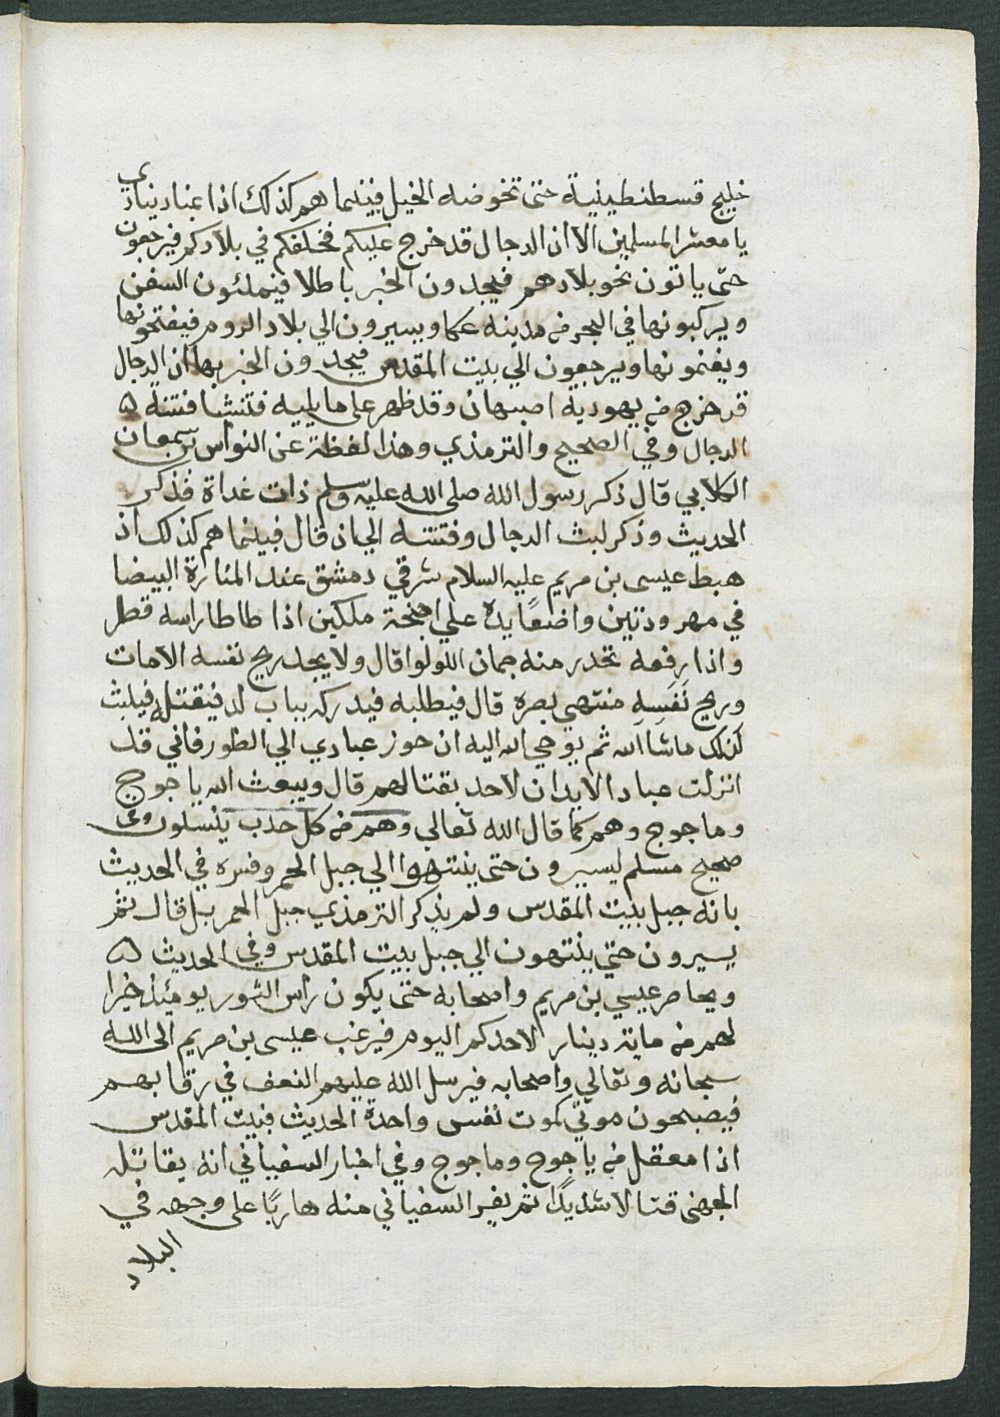 خليج قسطنطينية حتى تخوضه الخيل فبينما هم كذلك اذا بمناد ينادي
يا معشر المسلمين الا ان الدجال قد خرج عليكم فخلفكم في بلادكم فيرجعون
حتى ياتون نحو بلادهم فيجدون الخبر باطلا فيملئون السفن
ويركبونها في البحر من مدينه عكا ويسيرون الي بلاد الروم فيفتحونها
ويغنمونها ويرجعون الي بيت المقدس فيجدون الخبر بها ان الدجال
قد خرج من يهودية اصبهان وقد ظهر على ما يليه فتنشا فتنة ه
الدجال وفي الصحيح والترمذي وهذا لفظة عن النواس بن سمعان
الكلابي قال ذكر رسول الله صلى الله عليه وسلم ذات غداة فذكر
الحديث وذكر لبث الدجال وفتنته الي ان قال فبينما هم كذلك اذ
هبط عيسى بن مريم عليه السلام شرقي دمشق عند المنارة البيضا
في مهرودتين واضعًا يده علي اجنحة ملكين اذا طاطا راسه قطر
واذا رفعه تحدر منه جمان اللولو قال ولا يجد ريح نفسه الا مات
وريح نَفَسِهِ منتهي بصره قال فيطلبه فيدركه بباب لد فيقتله فيلبث
كذلك ما شا الله ثم يوحي الله اليه ان حوز عبادي الي الطور فاني قد
انزلت عبادا لا يدان لاحد بقتالهم قال ويبعث الله ياجوج
وماجوج وهم كما قال الله تعالي وهم من كل حدب ينسلون وفي
صحيح مسلم ليسيرون حتى ينتهوا الي جبل الحمر وفسره في الحديث
بانه جبل بيت المقدس ولم يذكر الترمذي جبل الحمر بل قال ثم
يسيرون حتي ينتهون الي جبل بيت المقدس وفي الحديث ه
ويحاصر عيسي بن مريم واصحابه حتى يكون راس الثور يومئذ خيرا
لهم من ماية دينار لاحدكم اليوم فيرغب عيسى بن مريم الى الله
سبحانه وتعالي واصحابه فيرسل الله عليهم النغف في رقابهم
فيصبحون موتي كموت نفس واحدة الحديث فبيت المقدس
اذا معقل من ياجوج وماجوج وفي اخبار السفياني انه يقاتله
الجهني قتالا شديدًا ثم يفر السفياني منه هاربًا على وجهه في
البلاد